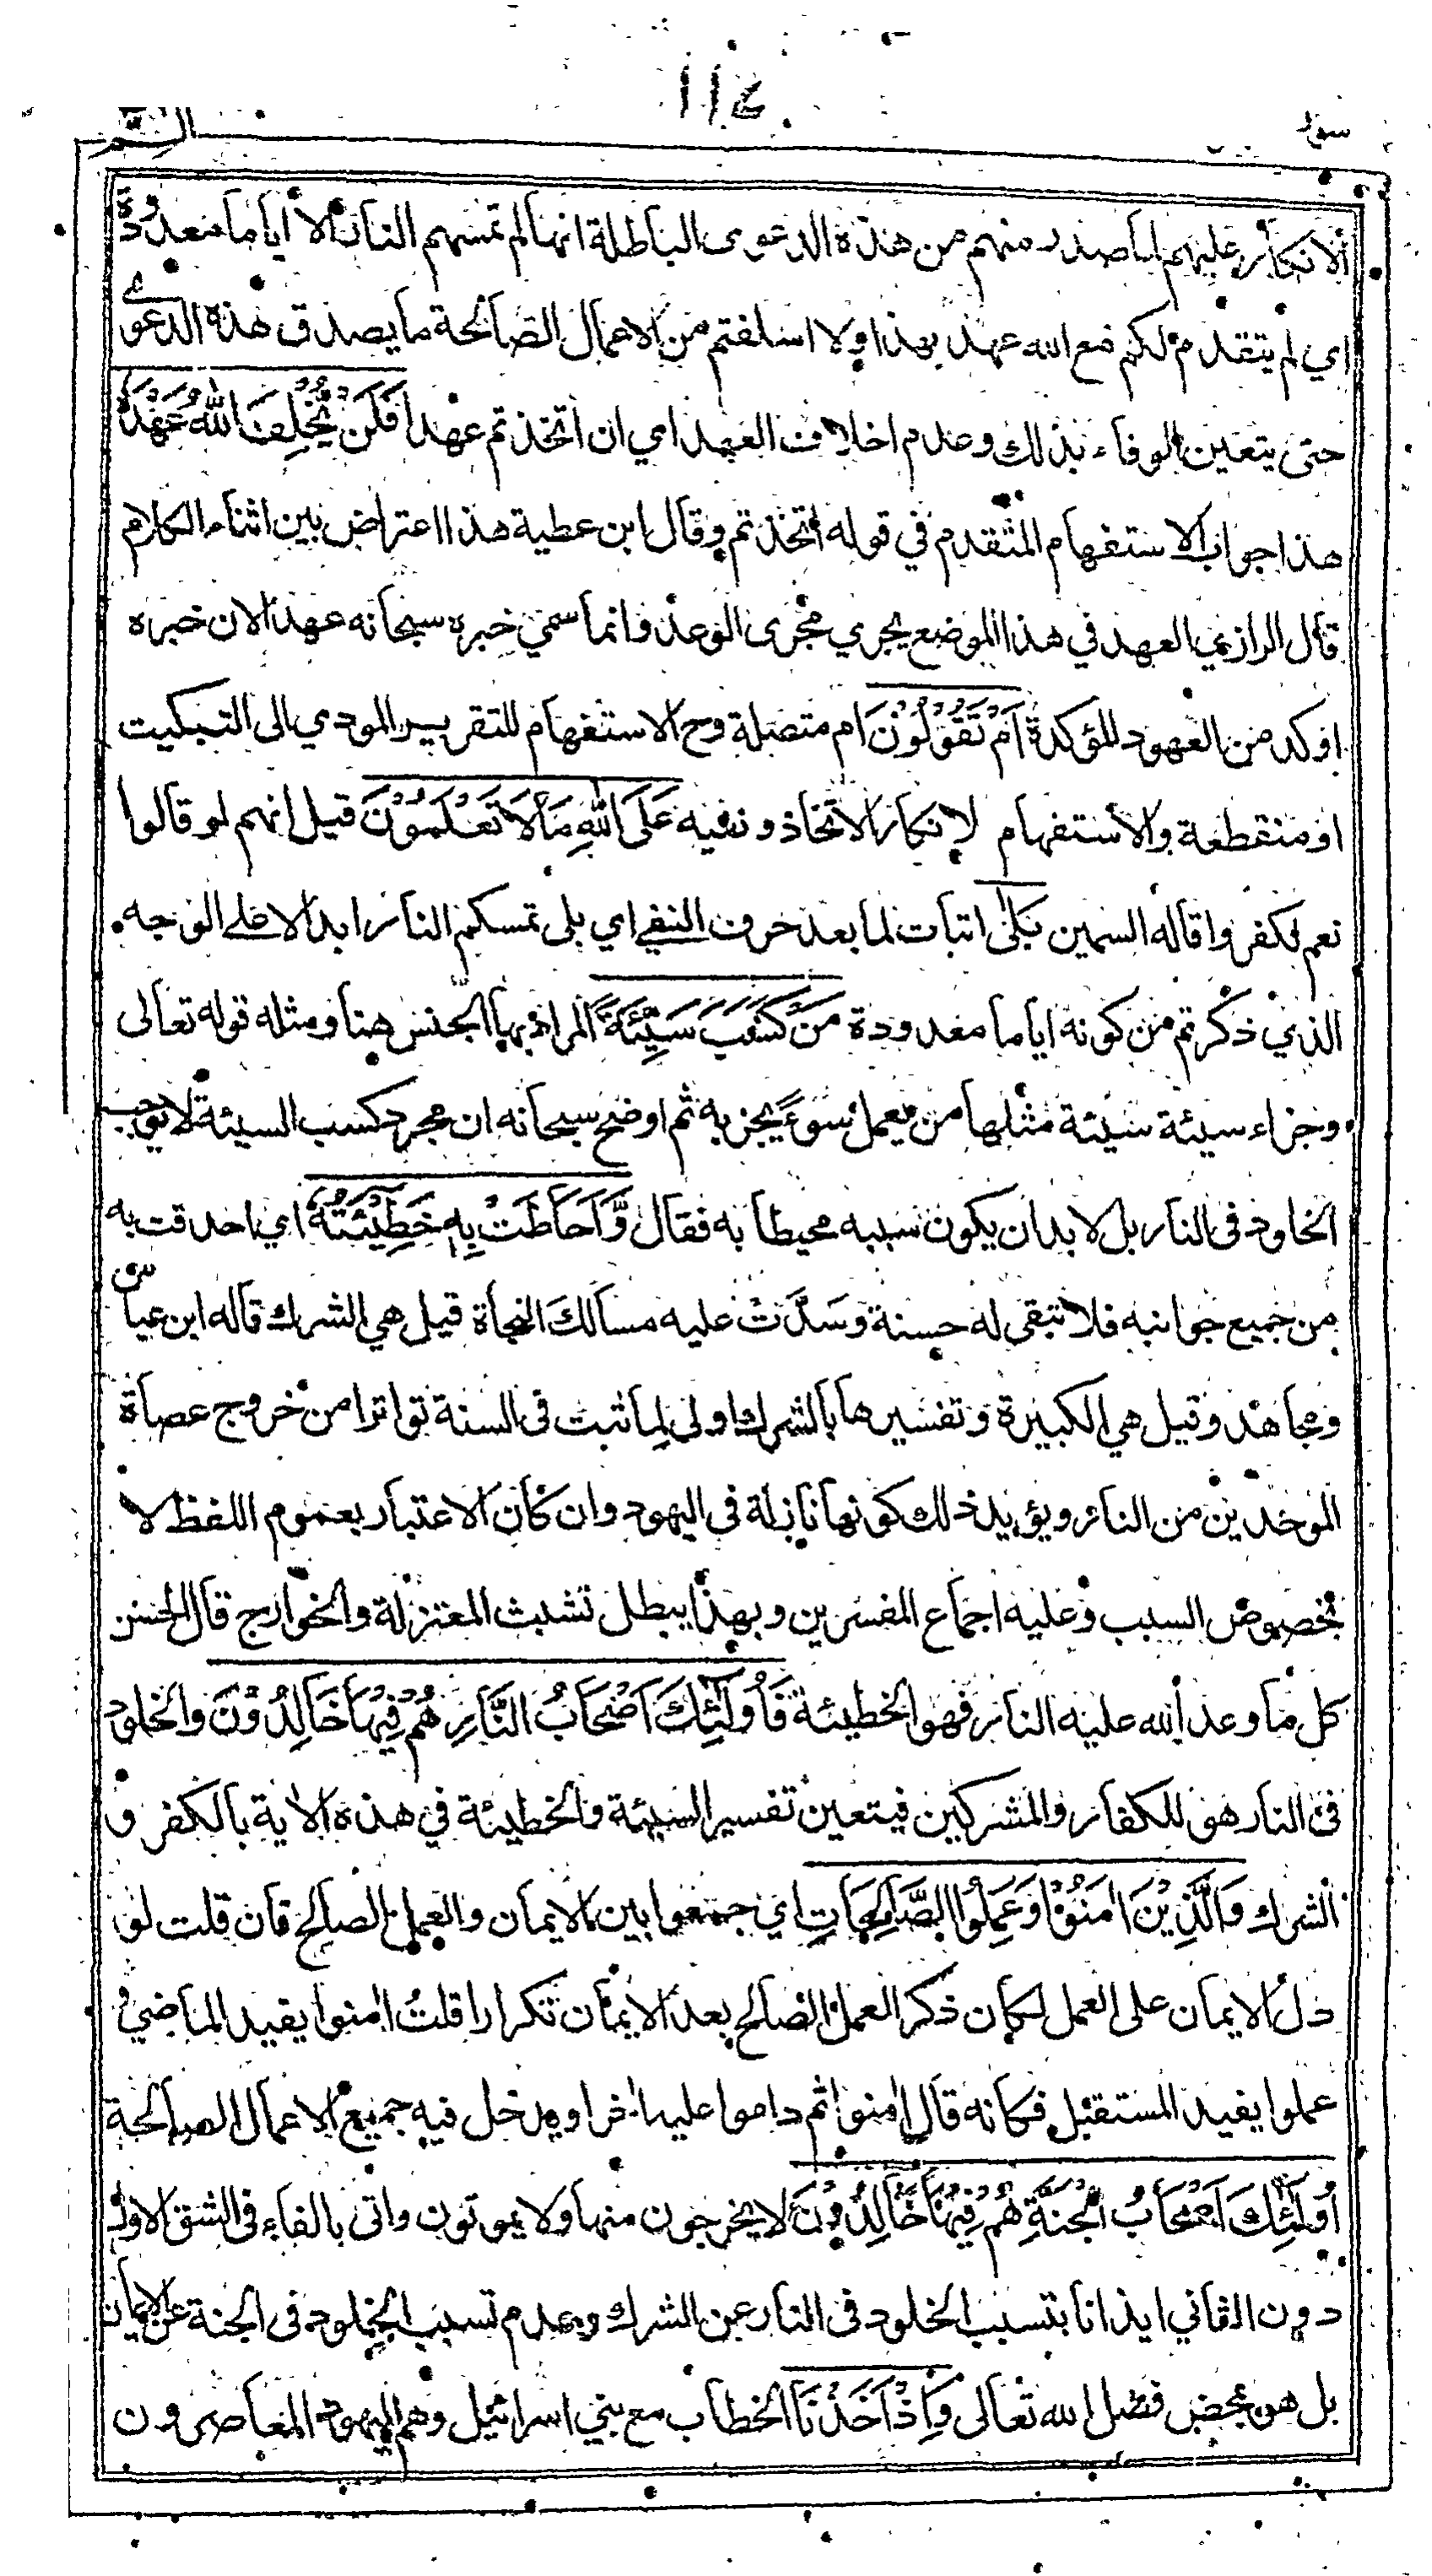 ١١٤
سورة
الٓـمّٓ
الانكار عليهم لما صدر منهم من هذه الدعوى الباطلة انها لم تمسهم النار الا اياما معدودة
اي لم يتقدم لكم مع الله عهد بهذا ولا اسلفتم من الاعمال الصالحة ما يصدق هذه الدعوى
حتى يتعين الوفاء بذلك وعدم اخلاف العهد اي ان اتخذتم عهدا فَلَنْ يُّخْلِفَ اللّٰهُ عَهْدَهٗ
هذا جواب الاستفهام المتقدم في قوله اتخذتم وقال ابن عطية هذا اعتراض بين اثناء الكلام
قال الرازي العهد في هذا الموضع يجري مجرى الوعد وانما سمي خبره سبحانه عهدا لان خبره
اوكد من العهود المؤكدة اَمْ تَقُوْلُوْنَ ام متصلة وح الاستفهام للتقرير المودي الى التبكيت
او منقطعة والاستفهام لانكار الاتخاذ ونفيه عَلَى اللّٰهِ مَا لَا تَعْلَمُوْنَ قيل انهم لو قالوا
نعم لكفروا قاله السمين بَلٰى اثبات لما بعد حرف النفي اي بلى تمسكم النار ابدا لا على الوجه
الذي ذكرتم من كونه اياما معدودة مَنْ كَسَبَ سَيِّئَةً المراد بها الجنس هنا ومثله قوله تعالى
وجزاء سيئة سيئة مثلها من يعمل سوءً يجز به ثم اوضح سبحانه ان مجرد كسب السيئة لا يوجب
الخلود في النار بل لا بد ان يكون سببه محيطا به فقال وَّاَحَاطَتْ بِهٖ خَطِيْئَتُهٗ اي احدقت به
من جميع جوانبه فلا تبقى له حسنة وسَدَّتْ عليه مسالك النجاة قيل هي الشرك قاله ابن عباس
ومجاهد وقيل هي الكبيرة وتفسيرها بالشرك اولى لما ثبت في السنة تواترا من خروج عصاة
الموحدين من النار ويؤيد ذلك كونها نازلة في اليهود وان كان الاعتبار بعموم اللفظ لا
بخصوص السبب وعليه اجماع المفسرين وبهذا يبطل تشبث المعتزلة والخوارج قال الحسن
كل ما وعد الله عليه النار فهو الخطيئة فَاُولٰٓئِكَ اَصْحَابُ النَّارِ هُمْ فِيْهَا خَالِدُوْنَ والخلود
في النار هو للكفار والمشركين فيتعين تفسير السيئة والخطيئة في هذه الاية بالكفر و
الشرك وَالَّذِيْنَ اٰمَنُوْا وَعَمِلُوا الصَّالِحَاتِ اي جمعوا بين الايمان والعمل الصالح فان قلت لو
دل الايمان على العمل لكان ذكر العمل الصالح بعد الايمان تكرارا قلتُ اٰمنوا يفيد الماضي و
عملوا يفيد المستقبل فكانه قال اٰمنوا ثم داموا عليه اٰخرا ويدخل فيه جميع الاعمال الصالحة
اُولٰٓئِكَ اَصْحَابُ الْجَنَّةِ هُمْ فِيْهَا خَالِدُوْنَ لا يخرجون منها ولا يموتون واتى بالفاء في الشق الاول
دون الثاني ايذانا بتسبب الخلود في النار عن الشرك وعدم تسبب الخلود في الجنة عن الايمان
بل هو بمحض فضل الله تعالى وَاِذْ اَخَذْنَا الخطاب مع بني اسرائيل وهم اليهود المعاصرون